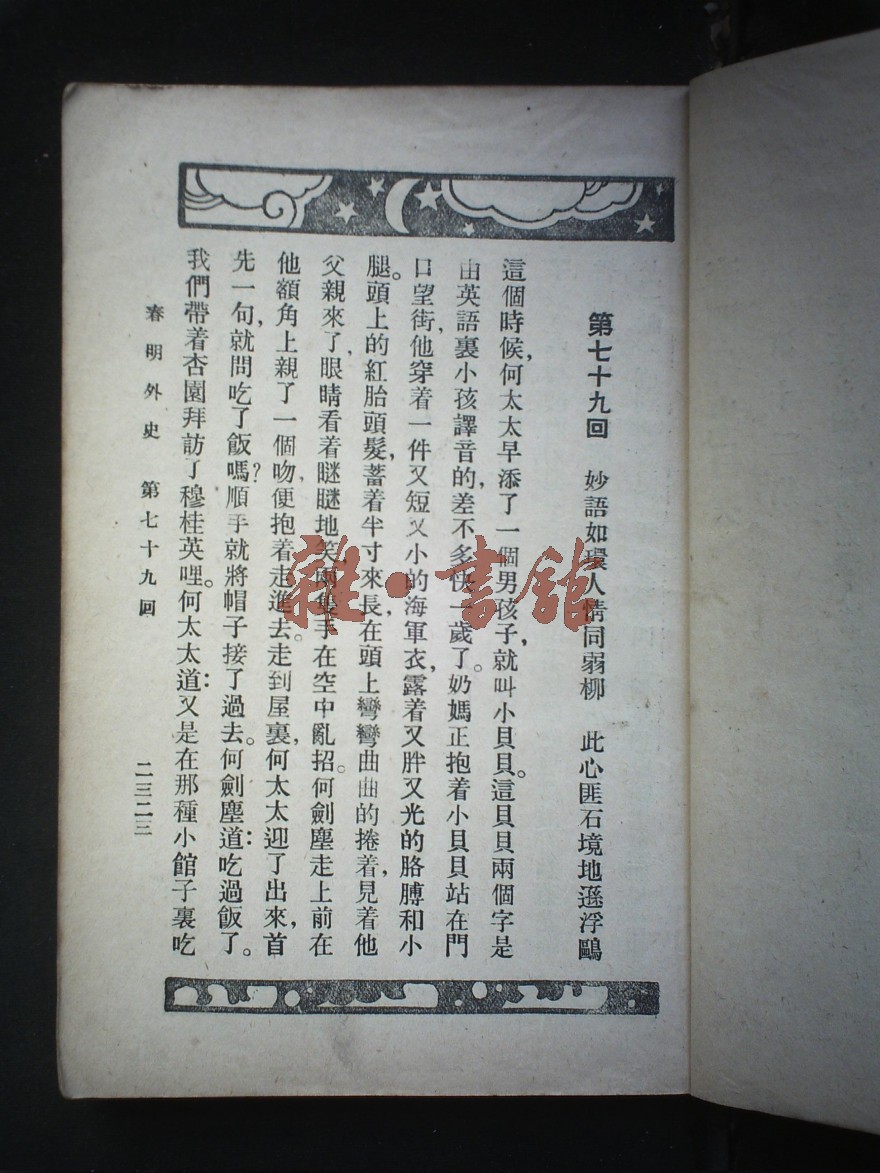 第七十九回　妙語如環人情同弱柳　此心匪石境地遜浮鷗
這個時候，何太太早添了一個男孩子，就叫小貝貝。這貝貝兩個字是
由英語裏小孩譯音的，差不多快一歲了。奶媽正抱着小貝貝站在門
口望街，他穿着一件又短又小的海軍衣，露着又胖又光的胳膊和小
腿。頭上的紅胎頭髮，蓄着半寸來長，在頭上彎彎曲曲的捲着，見着他
父親來了，眼睛看着瞇瞇地笑，兩隻手在空中亂招。何劍塵走上前在
他額角上親了一個吻，便抱着走進去。走到屋裏，何太太迎了出來，首
先一句，就問吃了飯嗎？順手就將帽子接了過去。何劍塵道：吃過飯了。
我們帶着杏園拜訪了穆桂英哩。何太太道：又是在那種小館子裏吃
春明外史　第七十九回
二三二三
雜·書館